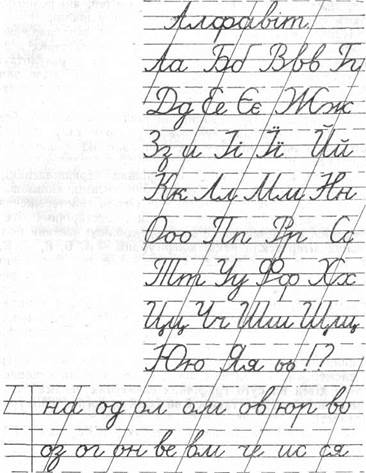 Алфавіт.
Аа Бб Ввв Гг
Дд Ее Єє Жж
Зз и Іі Її Йй
Кк Лл Мм Нн
Ооо Пп Рр Сс
Тт Уу Фф Хх
Цц Чч Шш Щщ
Юю Яя оь !?
на од ол ом ов юр во
оз ог он ве вм че ис ся